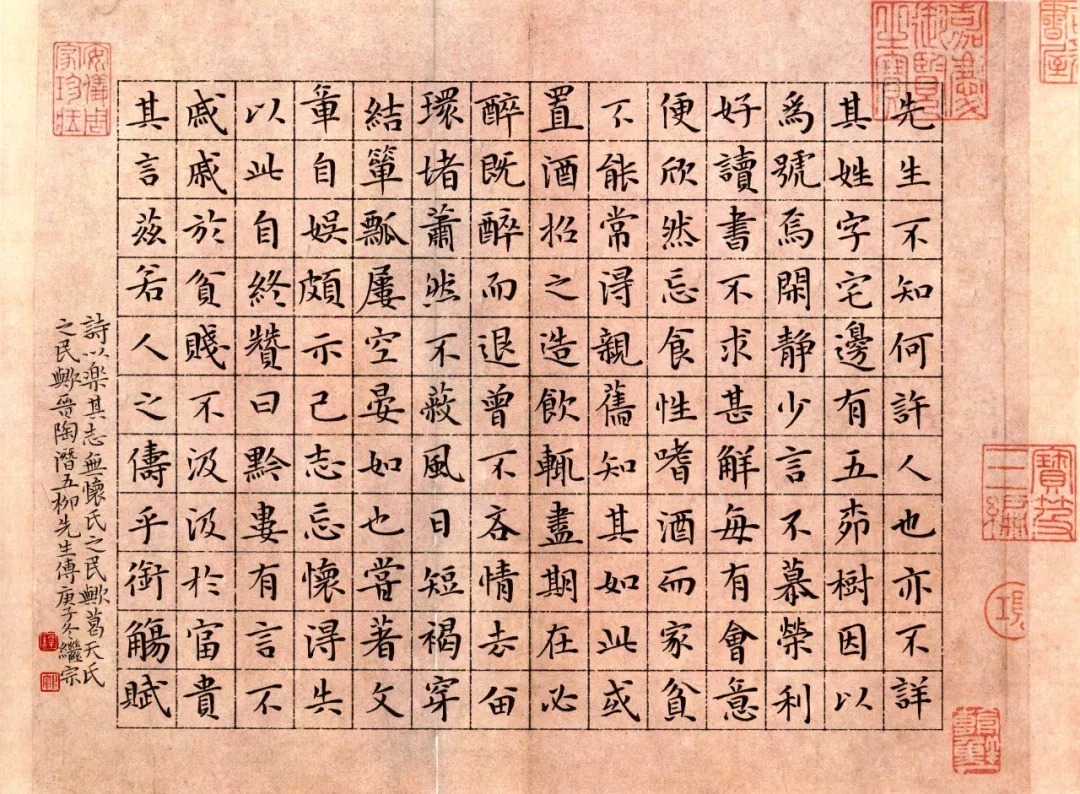 先生不知何許人也亦不詳
其姓字宅邊有五桺樹因以
為號焉閑静少言不慕榮利
好讀書不求甚解每有會意
便欣然忘食性嗜酒而家貧
不能常得親舊知其如此或
置酒招之造飲輒盡期在必
醉既醉而退曾不吝情去留
環堵蕭然不蔽風日短褐穿
結簞瓢屢空晏如也嘗著文
章自娱頗示己志忘懷得失
以此自終贊曰黔婁有言不
戚戚於貧賤不汲汲於富貴
其言茲若人之儔乎銜觴賦
詩以樂其志無懷氏之民歟葛天氏
之民歟晉陶潛五柳先生傳庚子冬繼宗
嘉慶御覽之寶
寶笈三編
安儀周家珍藏